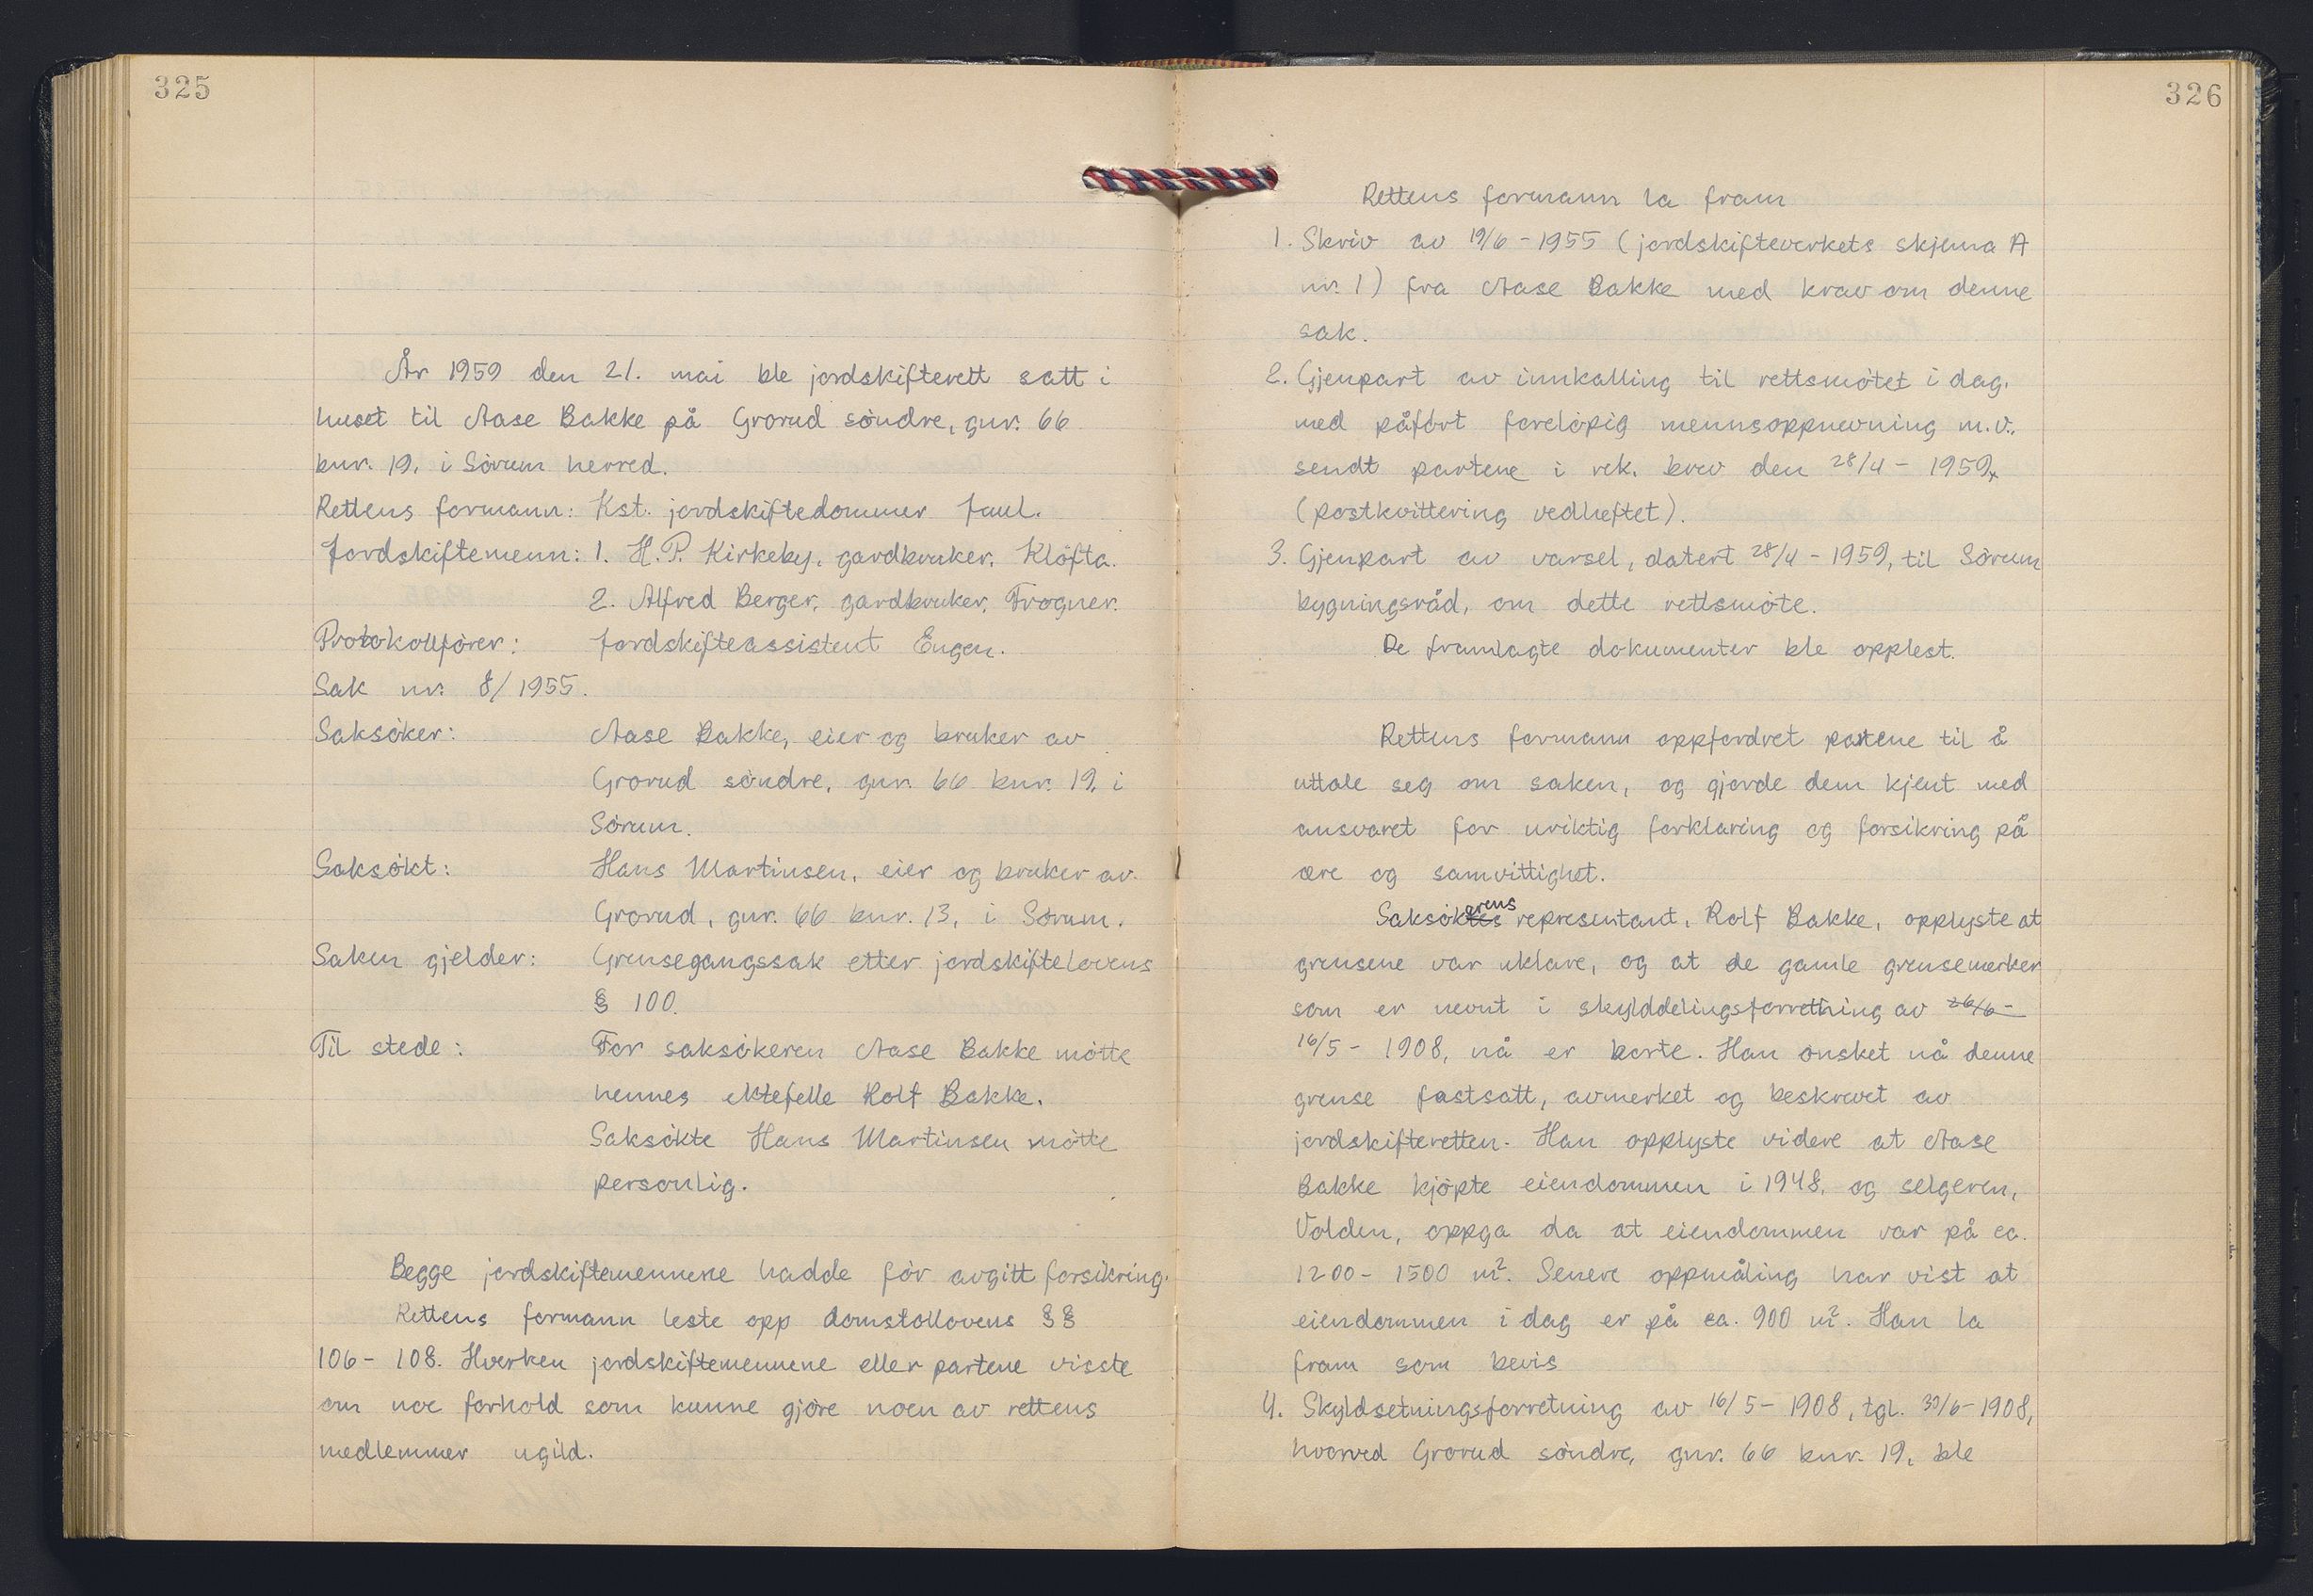 325
År 1959 den 21. mai ble jordskifterett satt i
huset til Aase Bakke på Grorud söndre, gnr. 66
bnr. 19, i Sörum herred.
Rettens formann: Kst. jordskiftedommer Juul.
Jordskiftemenn: 1. H.P. Kirkeby, gardbruker, Klöfta.
2. Alfred Berger, gardbruker, Frogner.
Protokollförer: Jordskifteassistent Engen.
Sak nr. 8/1955.
Saksöker: Aase Bakke, eier og bruker av
Grorud söndre, gnr. 66 bnr. 19, i
Sörum.
Saksökt: Hans Martinsen, eier og bruker av
Grorud, gnr. 66 bnr. 13, i Sörum.
Saken gjelder: Grensegangssak etter jordskiftelovens
§ 100.
Til stede: For saksökeren Aase Bakke mötte
hennes ektefelle Rolf Bakke.
Saksökte Hans Martinsen mötte
personlig.
Begge jordskiftemennene hadde för avgitt forsikring.
Rettens formann leste opp domstollovens §§
106- 108. Hverken jordskiftemennene eller partene visste
om noe forhold som kunne gjöre noen av rettens
medlemmer ugild.
326
Rettens formann la fram
1. Skriv av 19/6 - 1955 (jordskifteverkets skjema A
nr. 1) fra Aase Bakke med krav om denne
sak.
2. Gjenpart av innkalling til rettsmötet i dag.
med påfört forelöpig mennsoppnevning m.v.,
sendt partene i rek. brev den 28/4 - 1959,
(postkvittering vedheftet).
3. Gjenpart av varsel, datert 28/4 - 1959, til Sörum
bygningsråd, om dette rettsmöte.
De framlagte dokumenter ble opplest.
Rettens formann oppfordret partene til å
uttale seg om saken, og gjorde dem kjent med
ansvaret for uriktig forklaring og forsikring på
ære og samvittighet.
Saksökerens representant, Rolf Bakke, opplyste at
grensene var uklare, og at de gamle grensemerker
som er nevnt i skylddelingsforretning av 26/6 -
16/5 - 1908, nå er borte. Han önsket nå denne
grense fastsatt, avmerket og beskrevet av
jordskifteretten. Han opplyste videre at Aase
Bakke kjöpte eiendommen i 1948, og selgeren,
Volden, oppga da at eiendommen var på ca.
1200- 1500 m². Senere oppmåling har vist at
eiendommen i dag er på ca. 900 m². Han la
fram som bevis
4. Skyldsetningsforretning av 16/5 - 1908, tgl. 30/6 - 1908,
hvorved Grorud söndre, gnr. 66 bnr. 19, ble